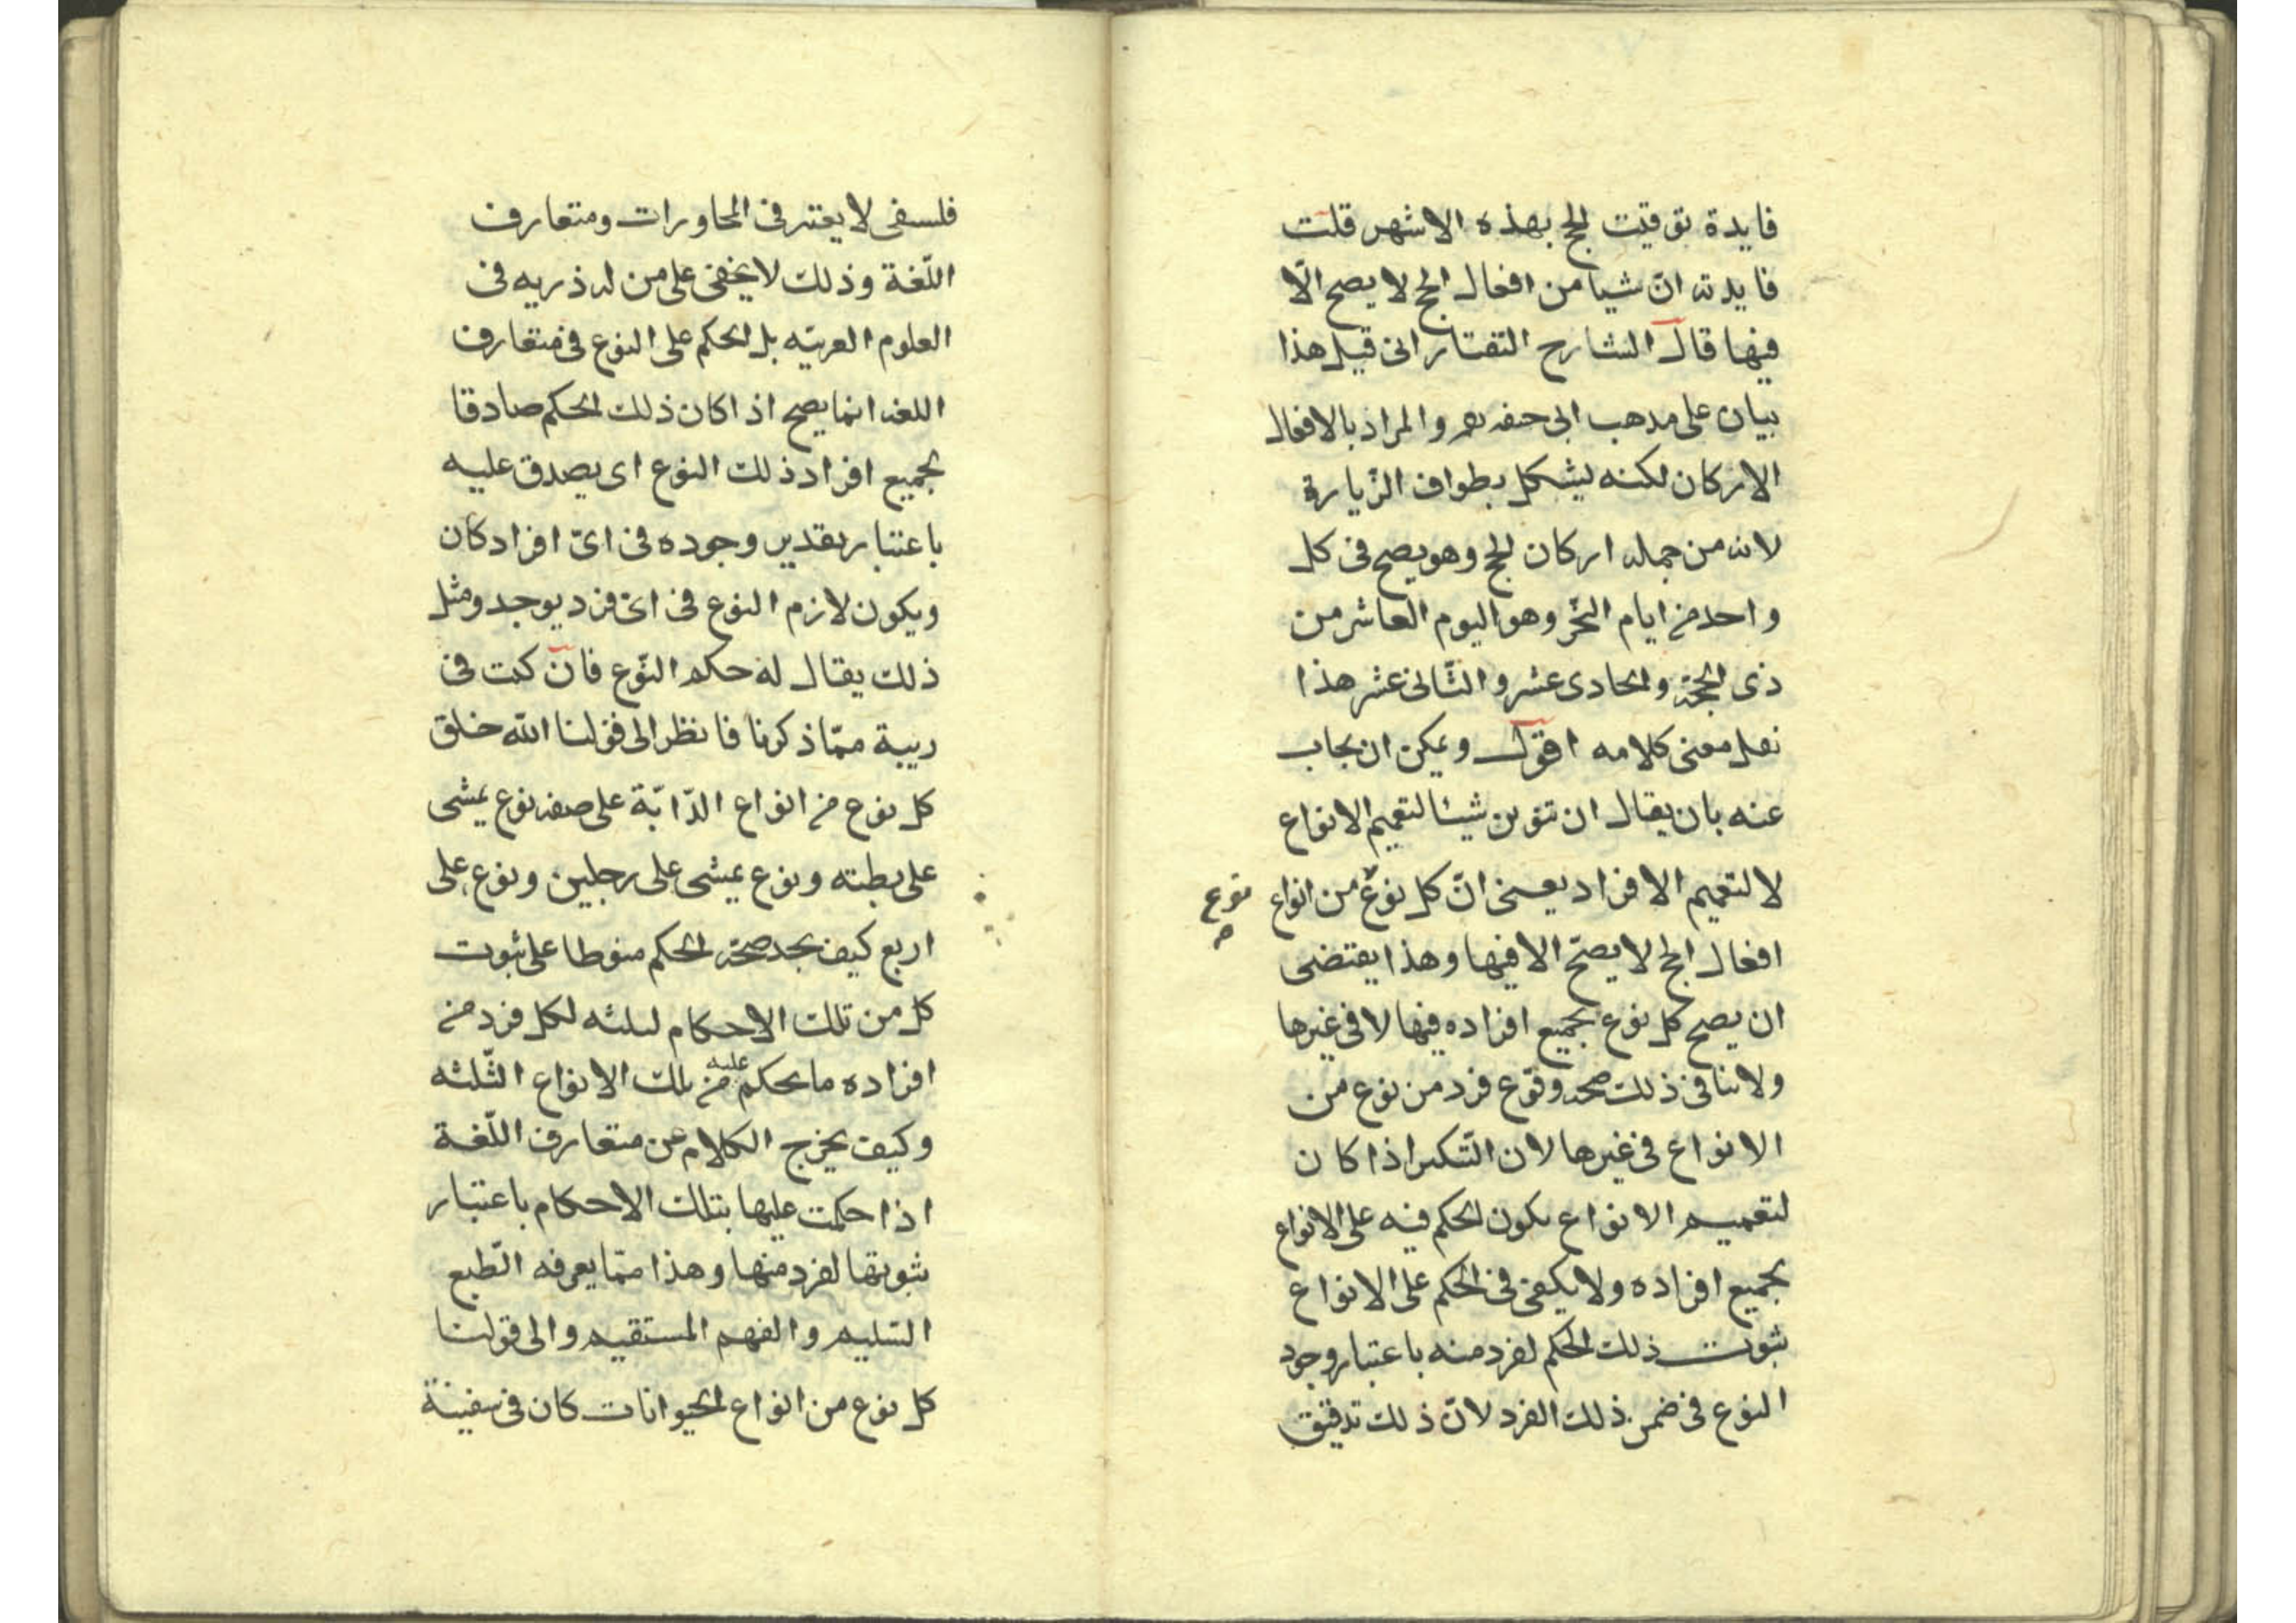 فايدة توقيت الحج بهذه الاشهر قلت
فايدته انّ شيا من افعال الحج لا يصح الّا
فيها قال الشارح التفتازانى قيل هذا
بيان على مدهب ابى حنفه والمراد بالافعال
الاركان لكنه يشكل بطواف الزّيارة
لانه من جمله اركان الحج وهو يصح فى كل
واحد من ايام النّحر وهو اليوم العاشر من
ذى الحجّة والحادى عشر والثّانى عشر هذا
نقل معنى كلامه اقول ويمكن ان يجاب
عنه بان يقال ان تنوين شيئا لتعميم الانواع
لا لتعميم الافراد يعنى انّ كل نوع من انواع
نوع
افعال الحج لا يصحّ الا فيها وهذا يقتضى
ان يصح كل نوع بجميع افراده فيها لا فى غيرها
ولا ينافى ذلك صحه وقوع فرد من نوع من
الانواع فى غيرها لان التّنكير اذا كان
لتعميم الانواع يكون الحكم فيه على الانواع
بجميع افراده ولا يكفى فى الحكم على الانواع
ثبوت ذلك الحكم لفرد منه باعتبار وجود
النوع فى ضمن ذلك الفرد لانّ ذلك تدقيق
فلسفى لا يعتبر فى المحاورات ومتعارف
اللّغة وذلك لا يخفى على من له دربه فى
العلوم العربيّه بل الحكم على النوع فى متعارف
اللغه انما يصح اذا كان ذلك الحكم صادقا
بجميع افراد ذلك النوع اى يصدق عليه
باعتبار تقدير وجوده فى اىّ افراد كان
ويكون لازم النوع فى اىّ فرد يوجد ومثل
ذلك يقال له حكم النّوع فان كنت فى
ريبة ممّا ذكرنا فانظر الى قولنا اللّه خلق
كل نوع من انواع الدّابّة على صفه نوع يمشى
على بطنه ونوع يمشى على رجلين ونوع على
اربع كيف تجد صحّة الحكم منوطا على ثبوت
كل من تلك الاحكام الثلثه لكل فرد من
افراده ما يحكم عليه من تلك الانواع الثّلثه
وكيف يخرج الكلام من متعارف اللّغة
اذا حكمت عليها بتلك الاحكام باعتبار
ثبوتها لفرد منها وهذا ممّا يعرفه الطّبع
السّليم والفهم المستقيم والى قولنا
كل نوع من انواع الحيوانات كان فى سفينة